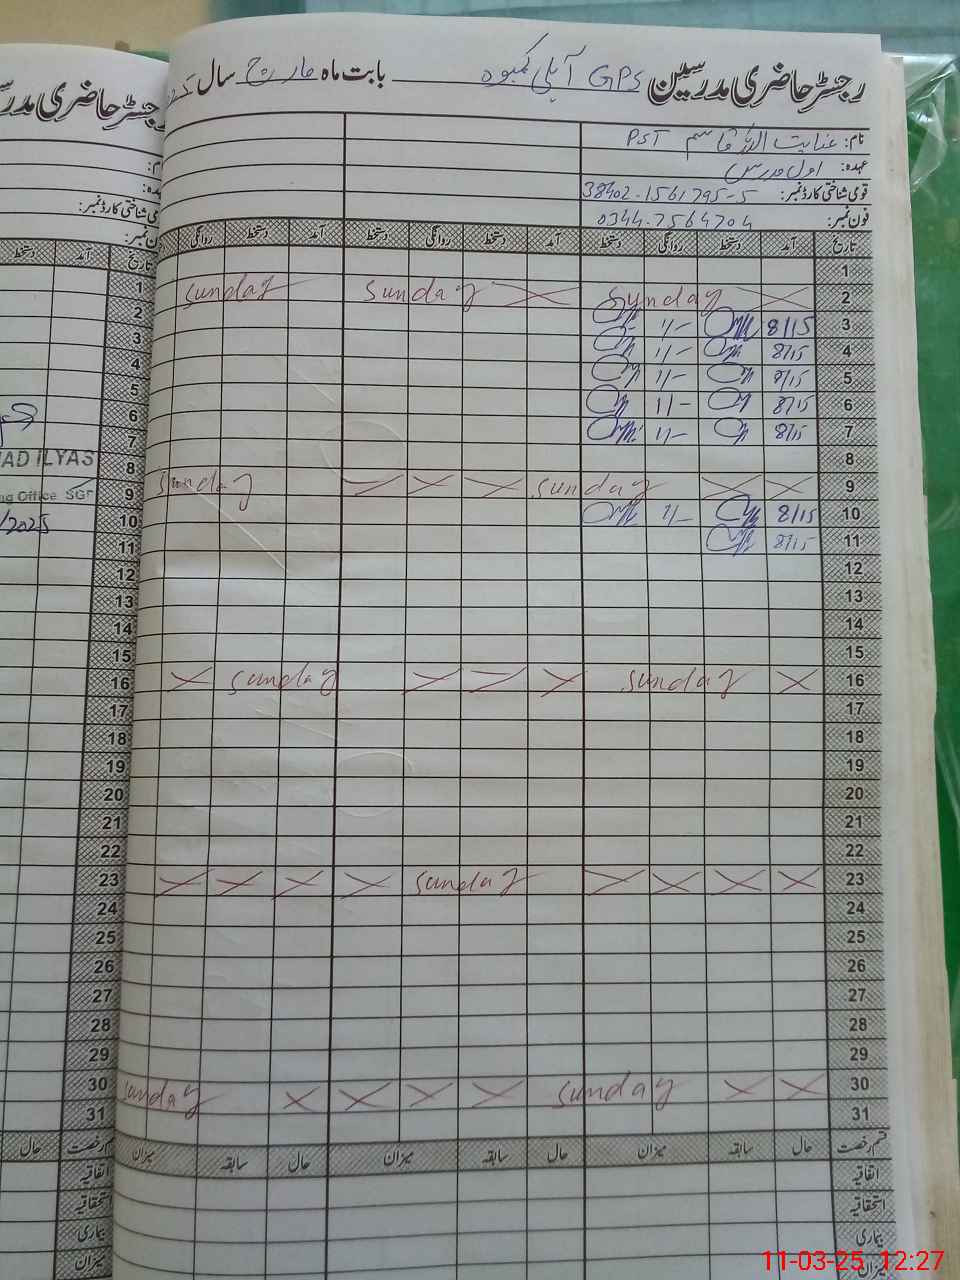 رجسٹر حاضری مدرسین GPS آبلی کمبوہ بابت ماہ مارچ سال
نام: عنایت اللہ قاسم PST
عہدہ: اول مدرس
قومی شناختی کارڈ نمبر: 38402-1561795-5
فون نمبر: 0344-7564704
تاریخ آمد دستخط روانگی دستخط آمد دستخط روانگی دستخط آمد دستخط روانگی
1
2 Sunday Sunday Sunday
3 8/15 1/-
4 8/15 1/-
5 8/15 1/-
6 8/15 1/-
7 8/15 1/-
8
9 Sunday Sunday
10 8/15 1/-
11 8/15
12
13
14
15
16 Sunday Sunday
17
18
19
20
21
22
23 Sunday
24
25
26
27
28
29
30 Sunday Sunday
31
قسم رخصت حال سابقہ میزان حال سابقہ میزان حال سابقہ میزان
اتفاقیہ
استحقاقیہ
بیماری
میزان
رجسٹر حاضری مدر
نام:
عہدہ:
می شناختی کارڈ نمبر:
فون نمبر:
تاریخ آمد دستخط
1
2
3
4
5
6
7
8
9
10
11
12
13
14
15
16
17
18
19
20
21
22
23
24
25
26
27
28
29
30
31
AD ILYAS
ng Office SGR
/2025
رخصت حال
اتفاقیہ
استحقاقیہ
بیماری
میزان
11-03-25 12:27